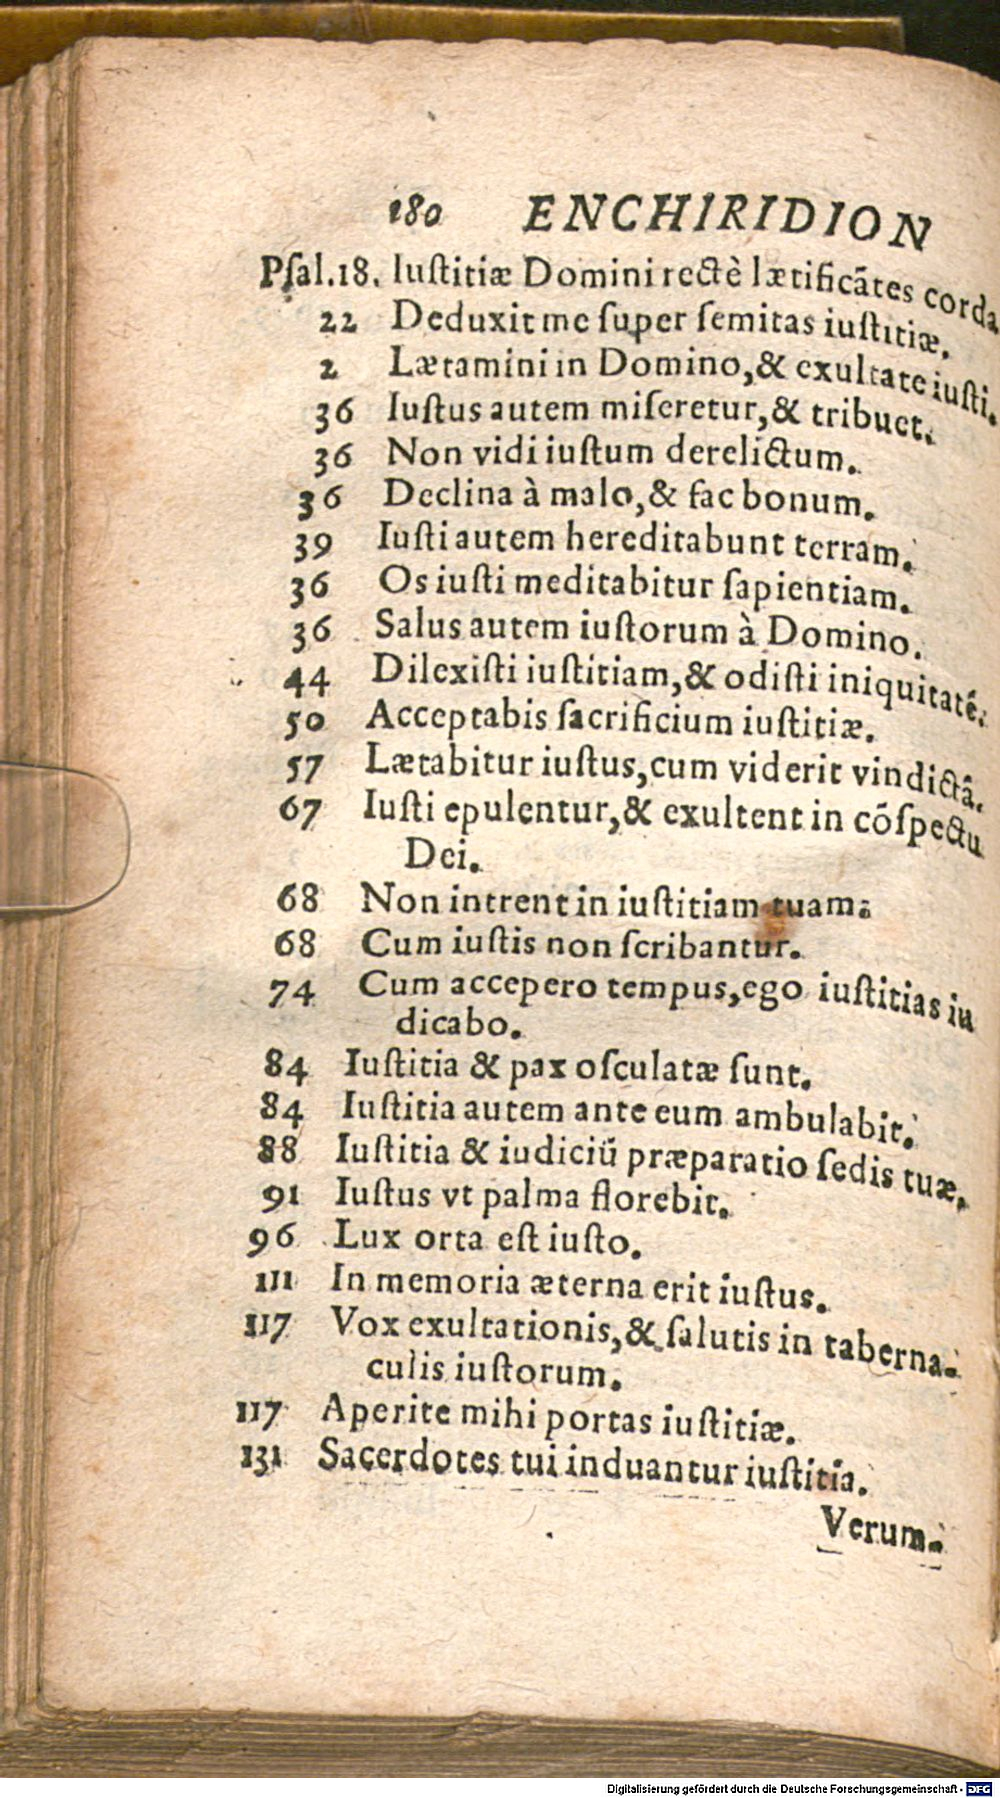 180 ENCHIRIDION
Psal.18. Iustitiæ Domini rectè lætificãtes corda
22 Deduxit me super semitas iustitiæ.
2 Lætamini in Domino,& exultate iusti.
36 Iustus autem miseretur,& tribuet.
36 Non vidi iustum derelictum.
36 Declina à malo,& fac bonum.
39 Iusti autem hereditabunt terram.
36 Os iusti meditabitur sapientiam.
36 Salus autem iustorum à Domino.
44 Dilexisti iustitiam,& odisti iniquitatẽ.
50 Acceptabis sacrificium iustitiæ.
57 Lætabitur iustus,cum viderit vindictã.
67 Iusti epulentur,& exultent in cõspectu
Dei.
68 Non intrent in iustitiam tuam.
68 Cum iustis non scribantur.
74 Cum accepero tempus,ego iustitias iu
dicabo.
84 Iustitia & pax osculatæ sunt.
84 Iustitia autem ante eum ambulabit.
88 Iustitia & iudiciũ præparatio sedis tuæ.
91 Iustus vt palma florebit.
96 Lux orta est iusto.
111 In memoria æterna erit iustus.
117 Vox exultationis,& salutis in taberna-
culis iustorum.
117 Aperite mihi portas iustitiæ.
131 Sacerdotes tui induantur iustitia.
Verum-
Digitalisierung gefördert durch die Deutsche Forschungsgemeinschaft - DFG